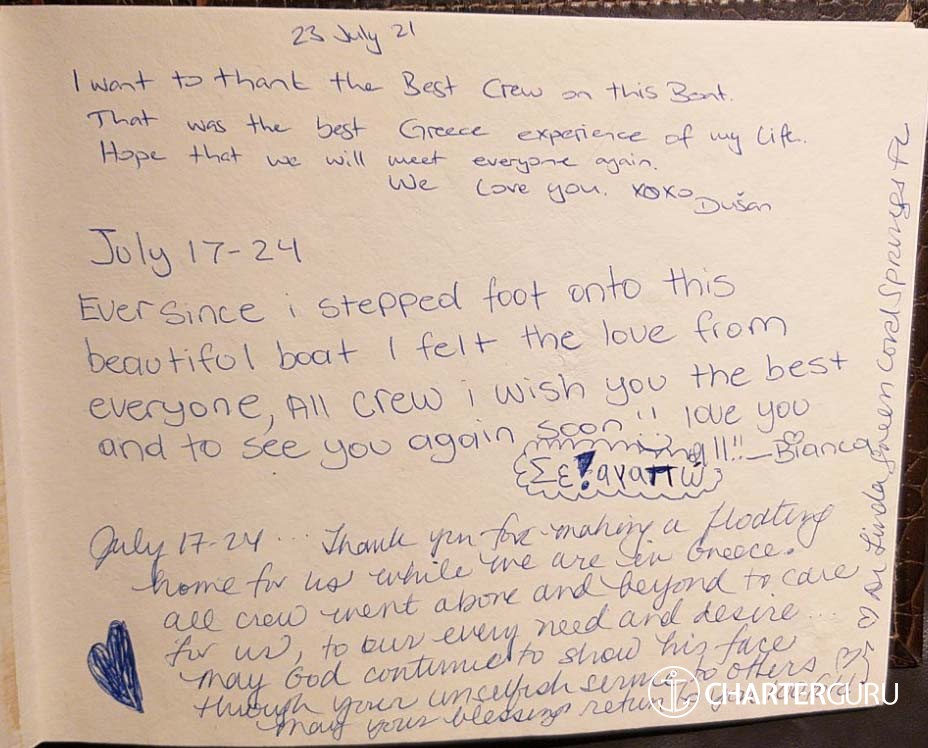 23 July 21
I want to thank the Best Crew on this Boat.
That was the best Greece experience of my life.
Hope that we will meet everyone again.
We love you. xoxo
Dušan
July 17-24
Ever since i stepped foot onto this
beautiful boat I felt the love from
everyone, All crew i wish you the best
and to see you again soon!! love you
!!!! — Bianca
Σε! αγαπώ
July 17-24... Thank you for making a floating
home for us while we are in Greece.
all crew went above and beyond to care
for us, to our every need and desire...
may God continue to show his face
through your unselfish service to others
may your blessings return to you
Linda Green Coral Springs FL
CHARTERGURU